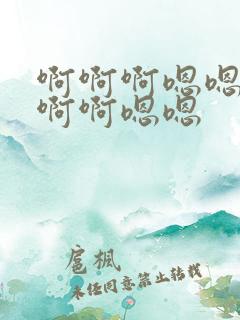 啊啊啊嗯嗯
啊啊嗯嗯
扈楓
未经同意禁止转载